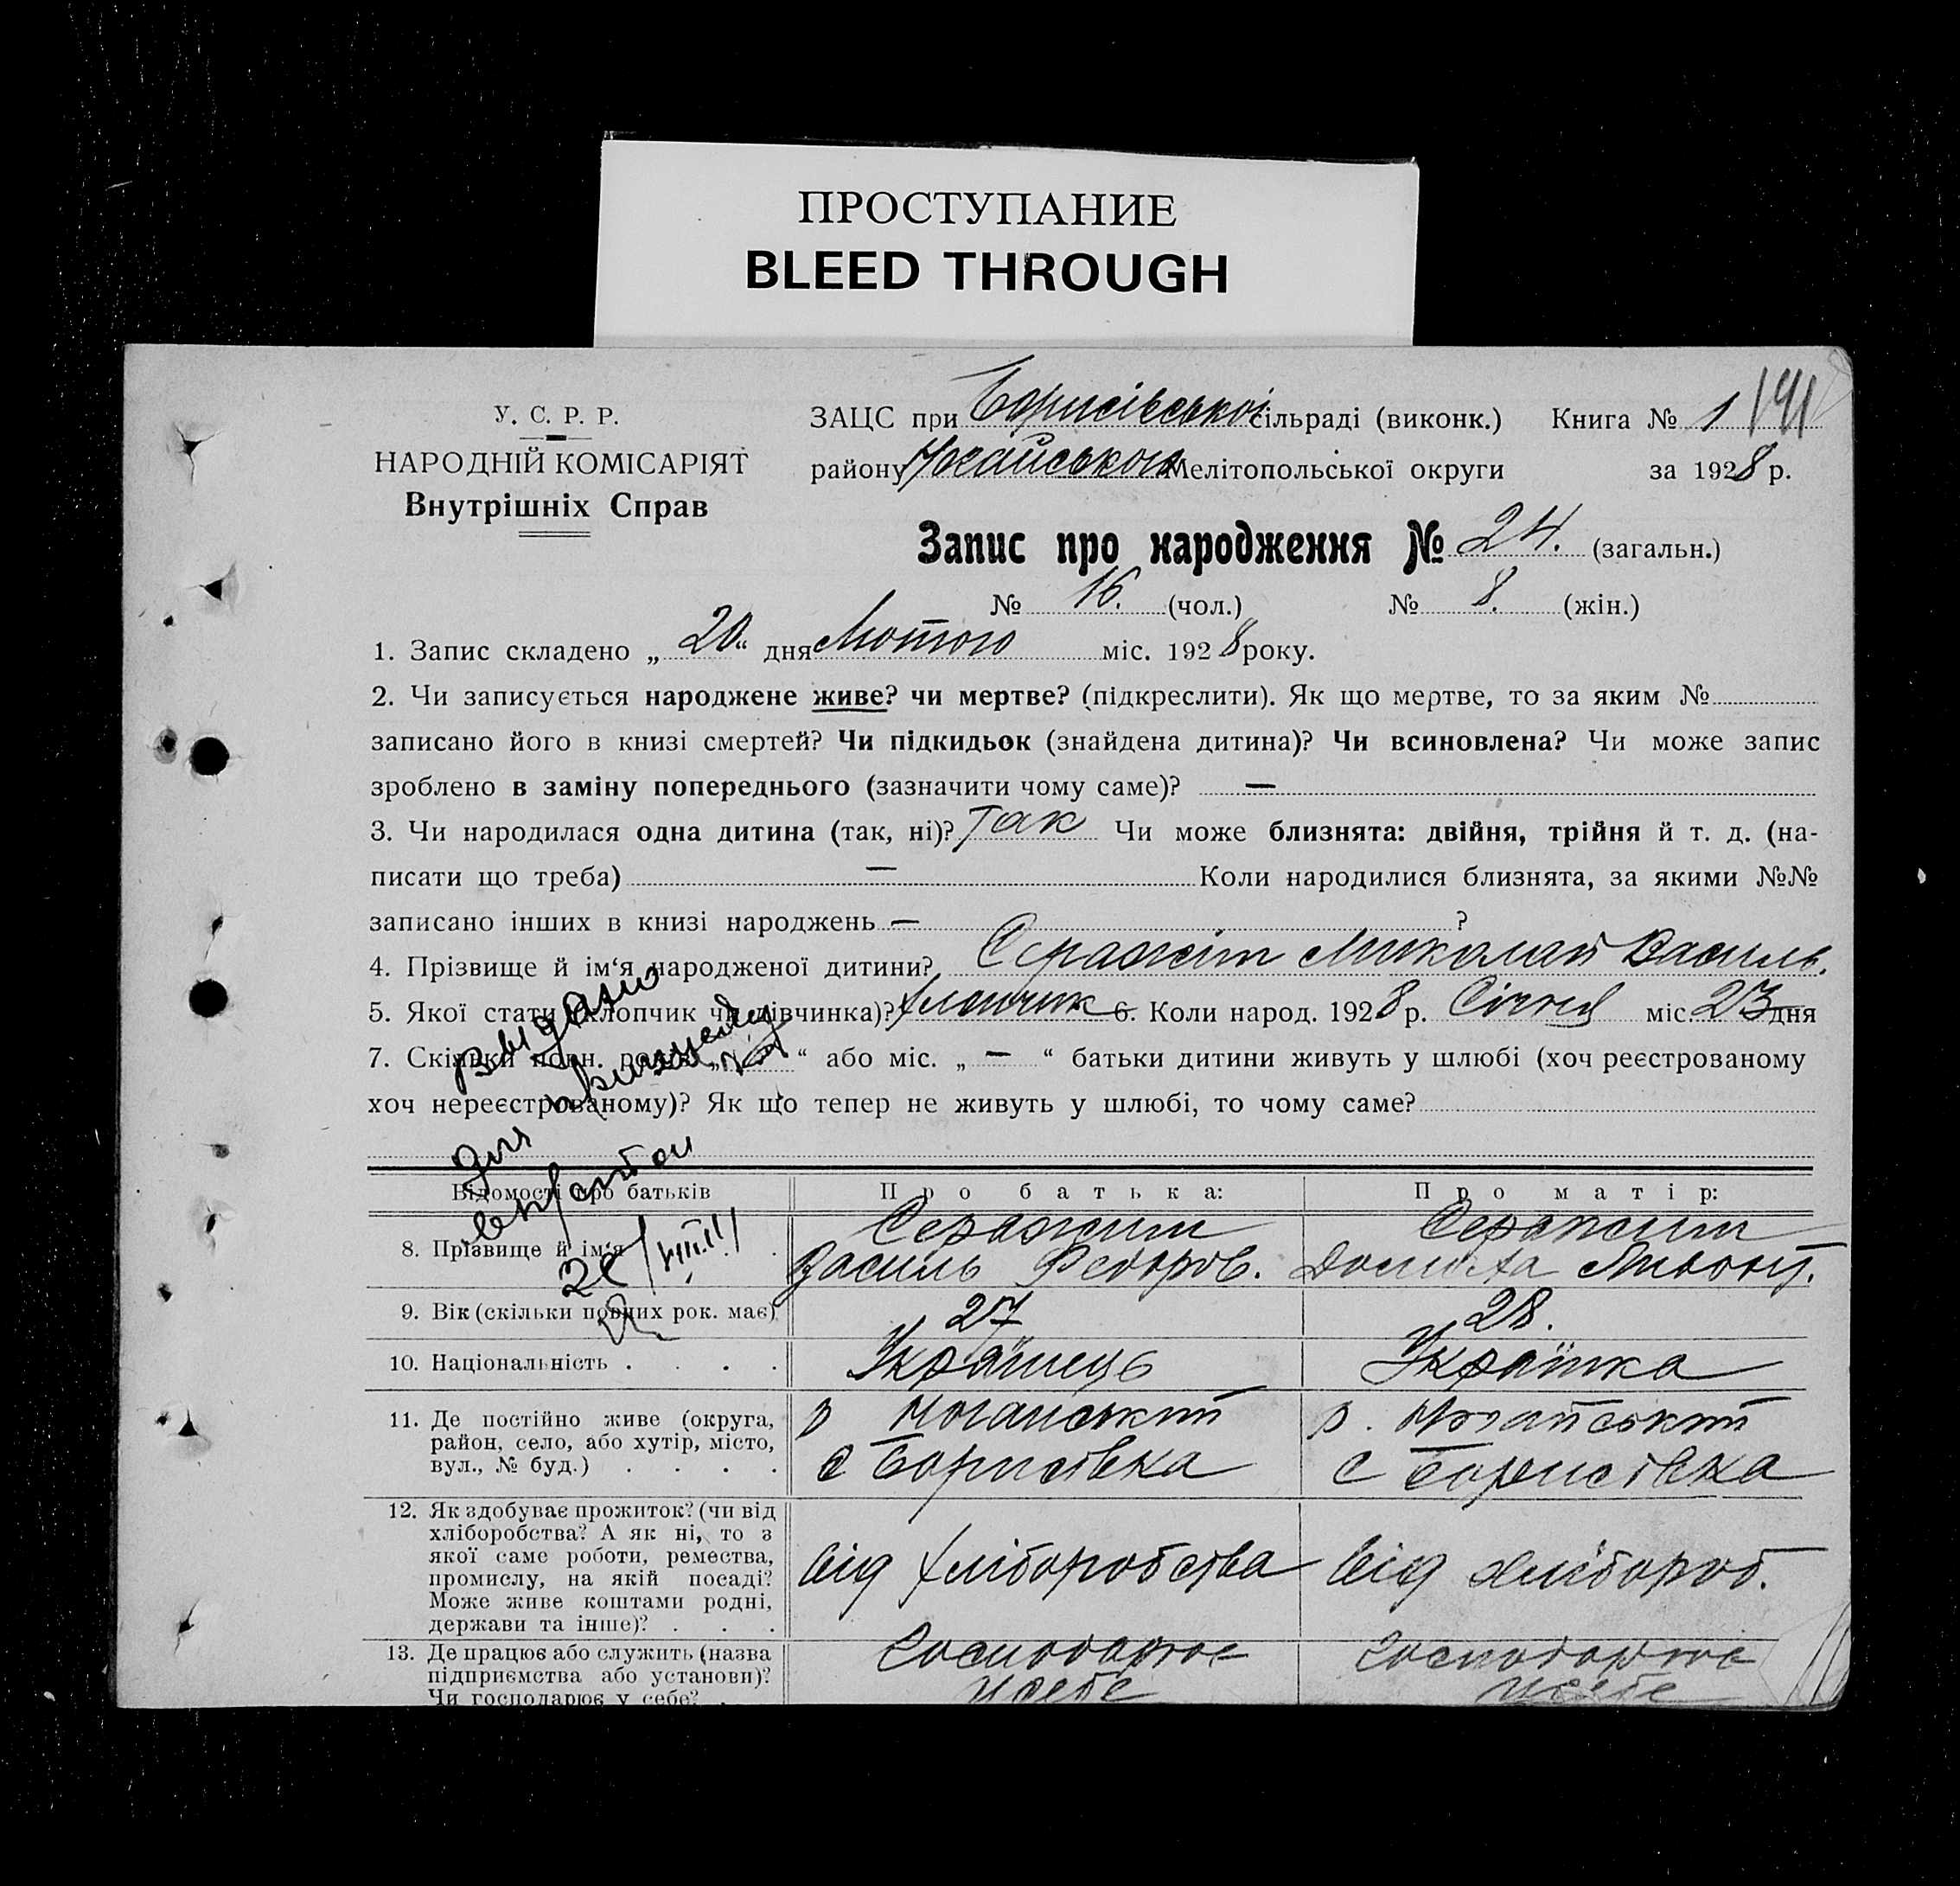 ПРОСТУПАНИЕ
BLEED THROUGH
У. С. Р. Р.
НАРОДНІЙ КОМІСАРІЯТ
Внутрішніх Справ
ЗАЦС при Борисівській сільраді (виконк.) Книга № 1 141
району Ногайського Мелітопольської округи за 1928 р.
Запис про народження № 24. (загальн.)
№ 16. (чол.) № 8. (жін.)
1. Запис складено „ 20 “ дня Лютого міс. 1928 року.
2. Чи записується народжене живе? чи мертве? (підкреслити). Як що мертве, то за яким №
записано його в книзі смертей? Чи підкидьок (знайдена дитина)? Чи всиновлена? Чи може запис
зроблено в заміну попереднього (зазначити чому саме)? —
3. Чи народилася одна дитина (так, ні)? Так Чи може близнята: двійня, трійня й т. д. (на-
писати що треба) — Коли народилися близнята, за якими №№
записано інших в книзі народжень — ?
4. Прізвище й ім‘я народженої дитини? Серажім Миколай Василь.
5. Якої стати (хлопчик чи дівчинка)? хлопчик 6. Коли народ. 1928 р. Січня міс. 23 дня
7. Скільки повн. років „ “ або міс. „ — “ батьки дитини живуть у шлюбі (хоч реєстрованому
хоч нереєстрованому)? Як що тепер не живуть у шлюбі, то чому саме?
Выдано
для
Відомості про батьків Про батька: Про матір:
8. Прізвище й ім‘я . Серажим Серажим
Василь Федоров.
9. Вік (скільки повних рок. має) 27 28.
10. Національність . . . . Українець Українка
11. Де постійно живе (округа, район, село, або хутір, місто, вул., № буд.) . . . .
р Ногайський р. Ногайський
с Борисівка с Борисівка
12. Як здобуває прожиток? (чи від
хліборобства? А як ні, то з
якої саме роботи, ремества,
промислу, на якій посаді?
Може живе коштами родні,
держави та інше)? . . .
від хліборобства від хлібороб.
13. Де працює або служить (назва
підприємства або установи)?
Чи господарює у себе? .
Господарює Господарює
у себе у себе